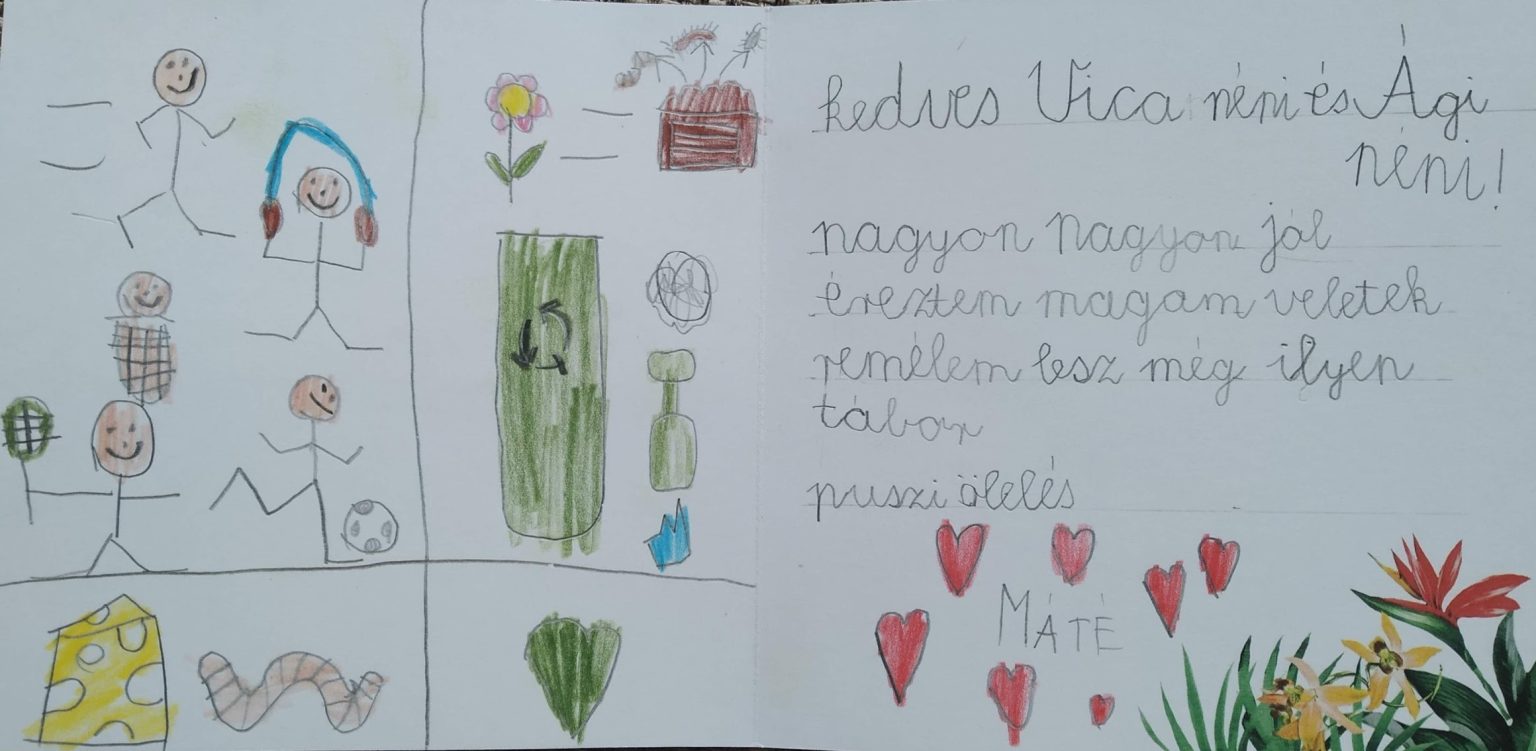 kedves Vica néni és Ági
néni!
nagyon nagyon jól
éreztem magam veletek
remélem lesz még ilyen
tábor
puszi ölelés
MÁTÉ